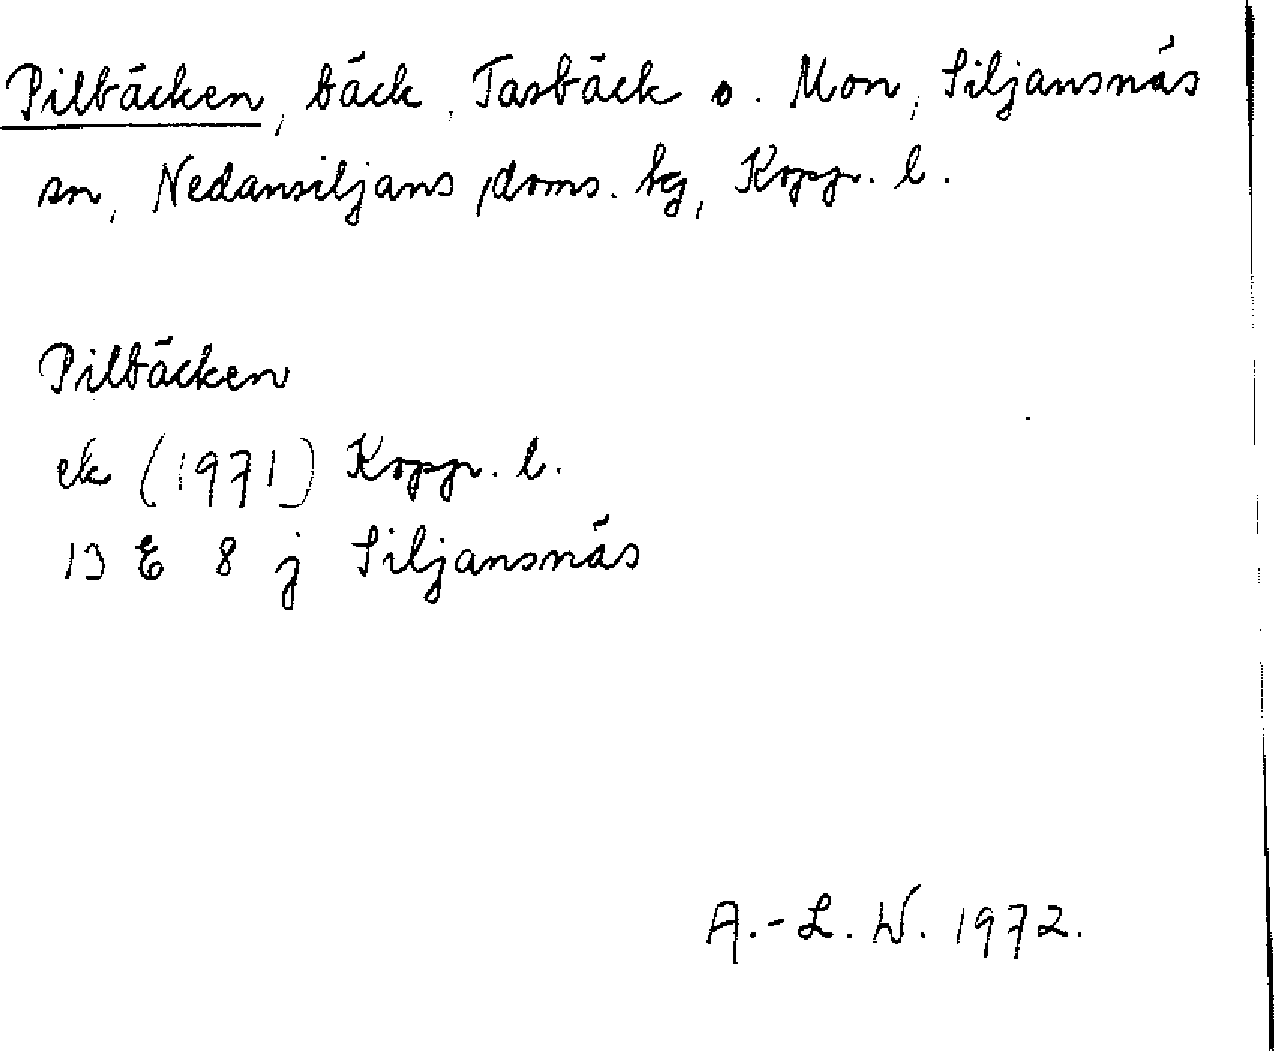 Pilbäcken, bäck, Tasbäck o. Mon, Siljansnäs
sn, Nedansiljans doms. hg, Kopp. l.
Pilbäcken
ek (1971) Kopp. l.
13 E 8 j Siljansnäs
A.-L. W. 1972.